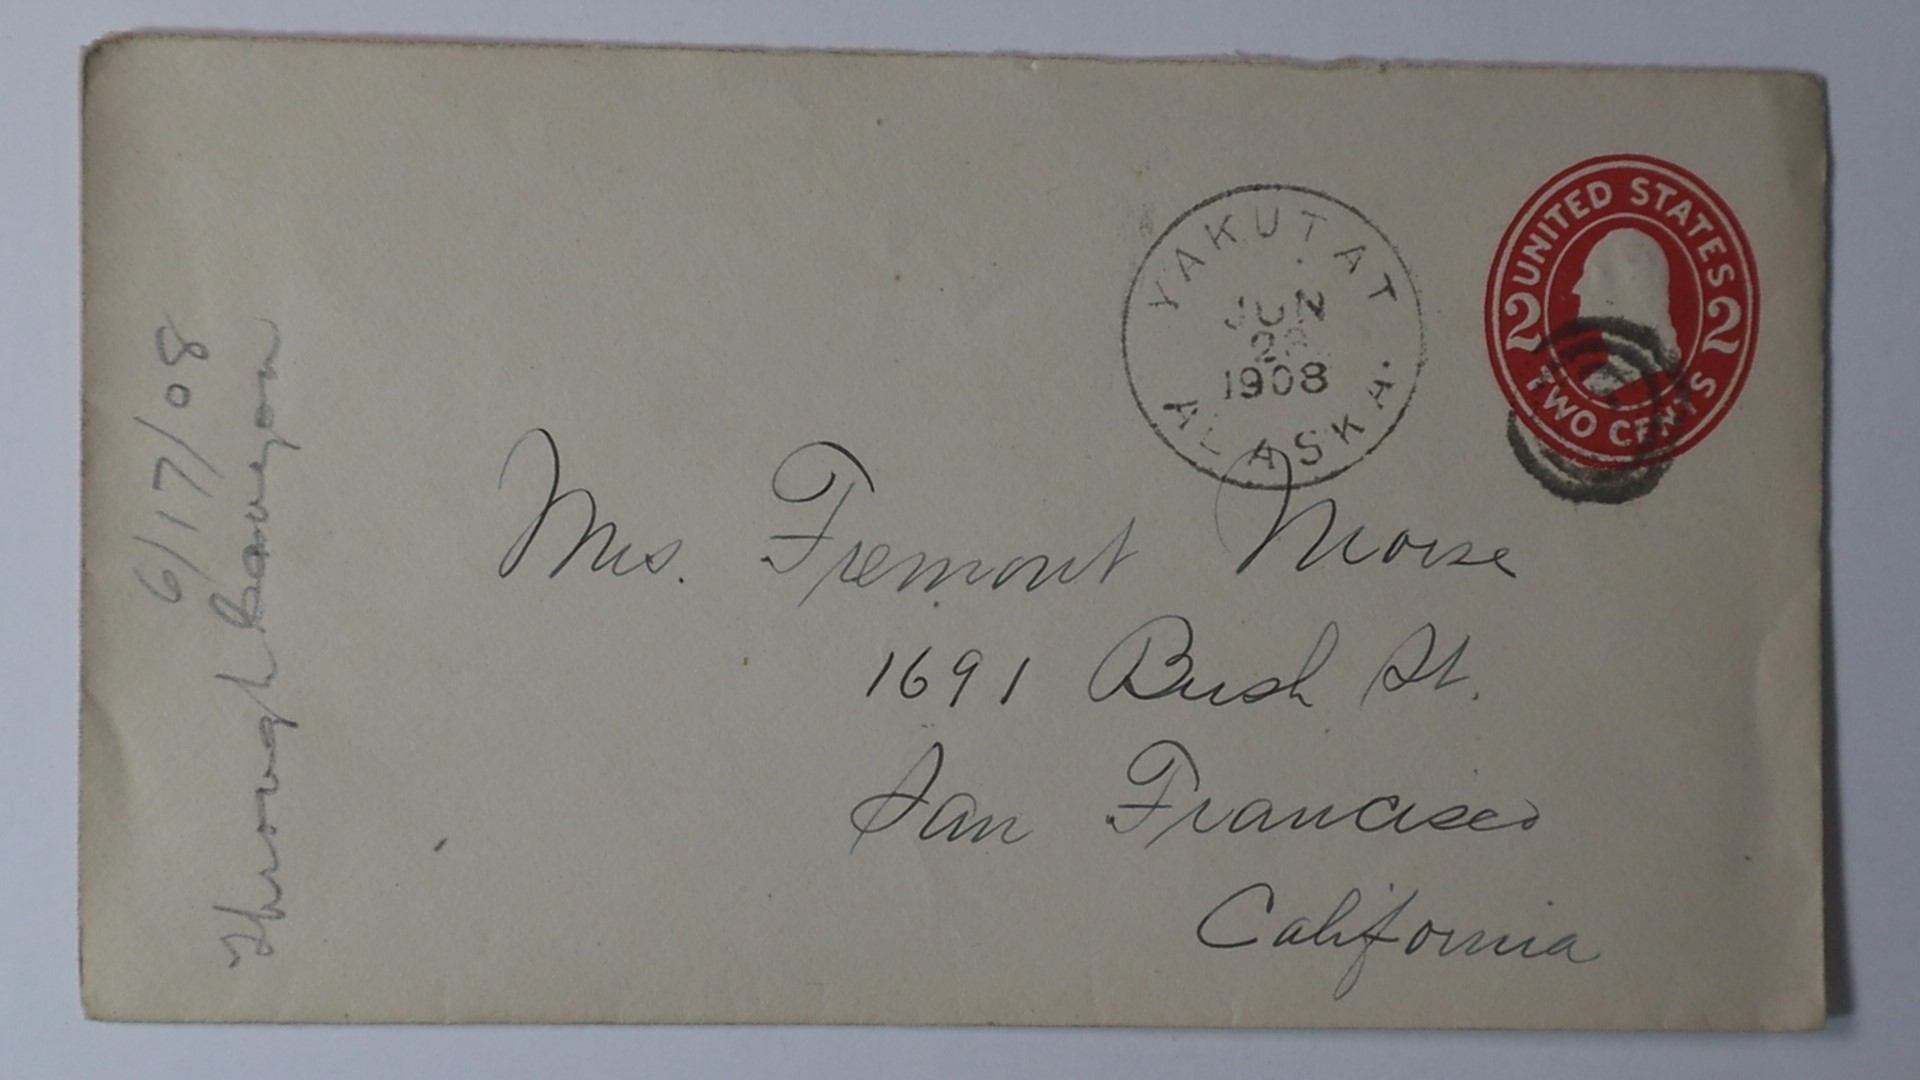 UNITED STATES
2 2
TWO CENTS
YAKUTAT
JUN
1908
ALASKA.
Mrs. Fremont Morse
1691 Bush St.
San Francisco
California
6/17/08
Through